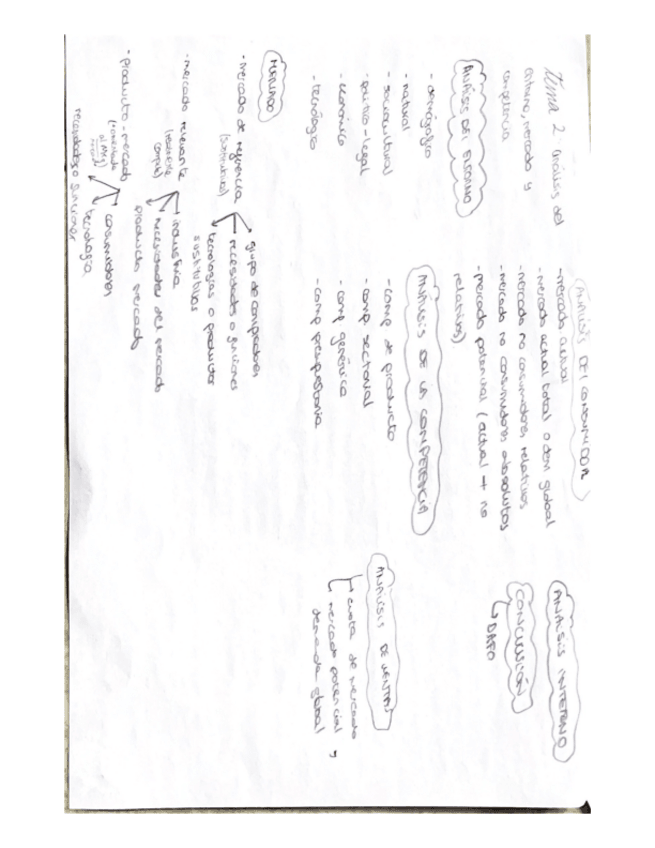 Tema 2 análisis del
entorno, mercado y
competencia
ANÁLISIS DEL ENTORNO
- demográfico
- natural
- sociocultural
- político-legal
- económico
- tecnológico
MERCADO
- mercado de referencia
(sustitutivas)
grupo de compradores
necesidades o funciones
tecnologías o productos
sustitutivas
- mercado relevante
industria
necesidades del mercado
producto mercado
- producto-mercado
consumidores
tecnología
necesidades o funciones
ANÁLISIS DEL CONSUMIDOR
- mercado actual
- mercado actual total o dem global
- mercado no consumidores relativos
- mercado no consumidores absolutos
- mercado potencial (actual + no
relativos)
ANÁLISIS DE LA COMPETENCIA
- comp de producto
- comp sectorial
- comp genérica
- comp presupuestaria
ANÁLISIS DE VENTAS
cuota de mercado
mercado potencial y
demanda global
ANÁLISIS INTERNO
CONCLUSIÓN
DAFO